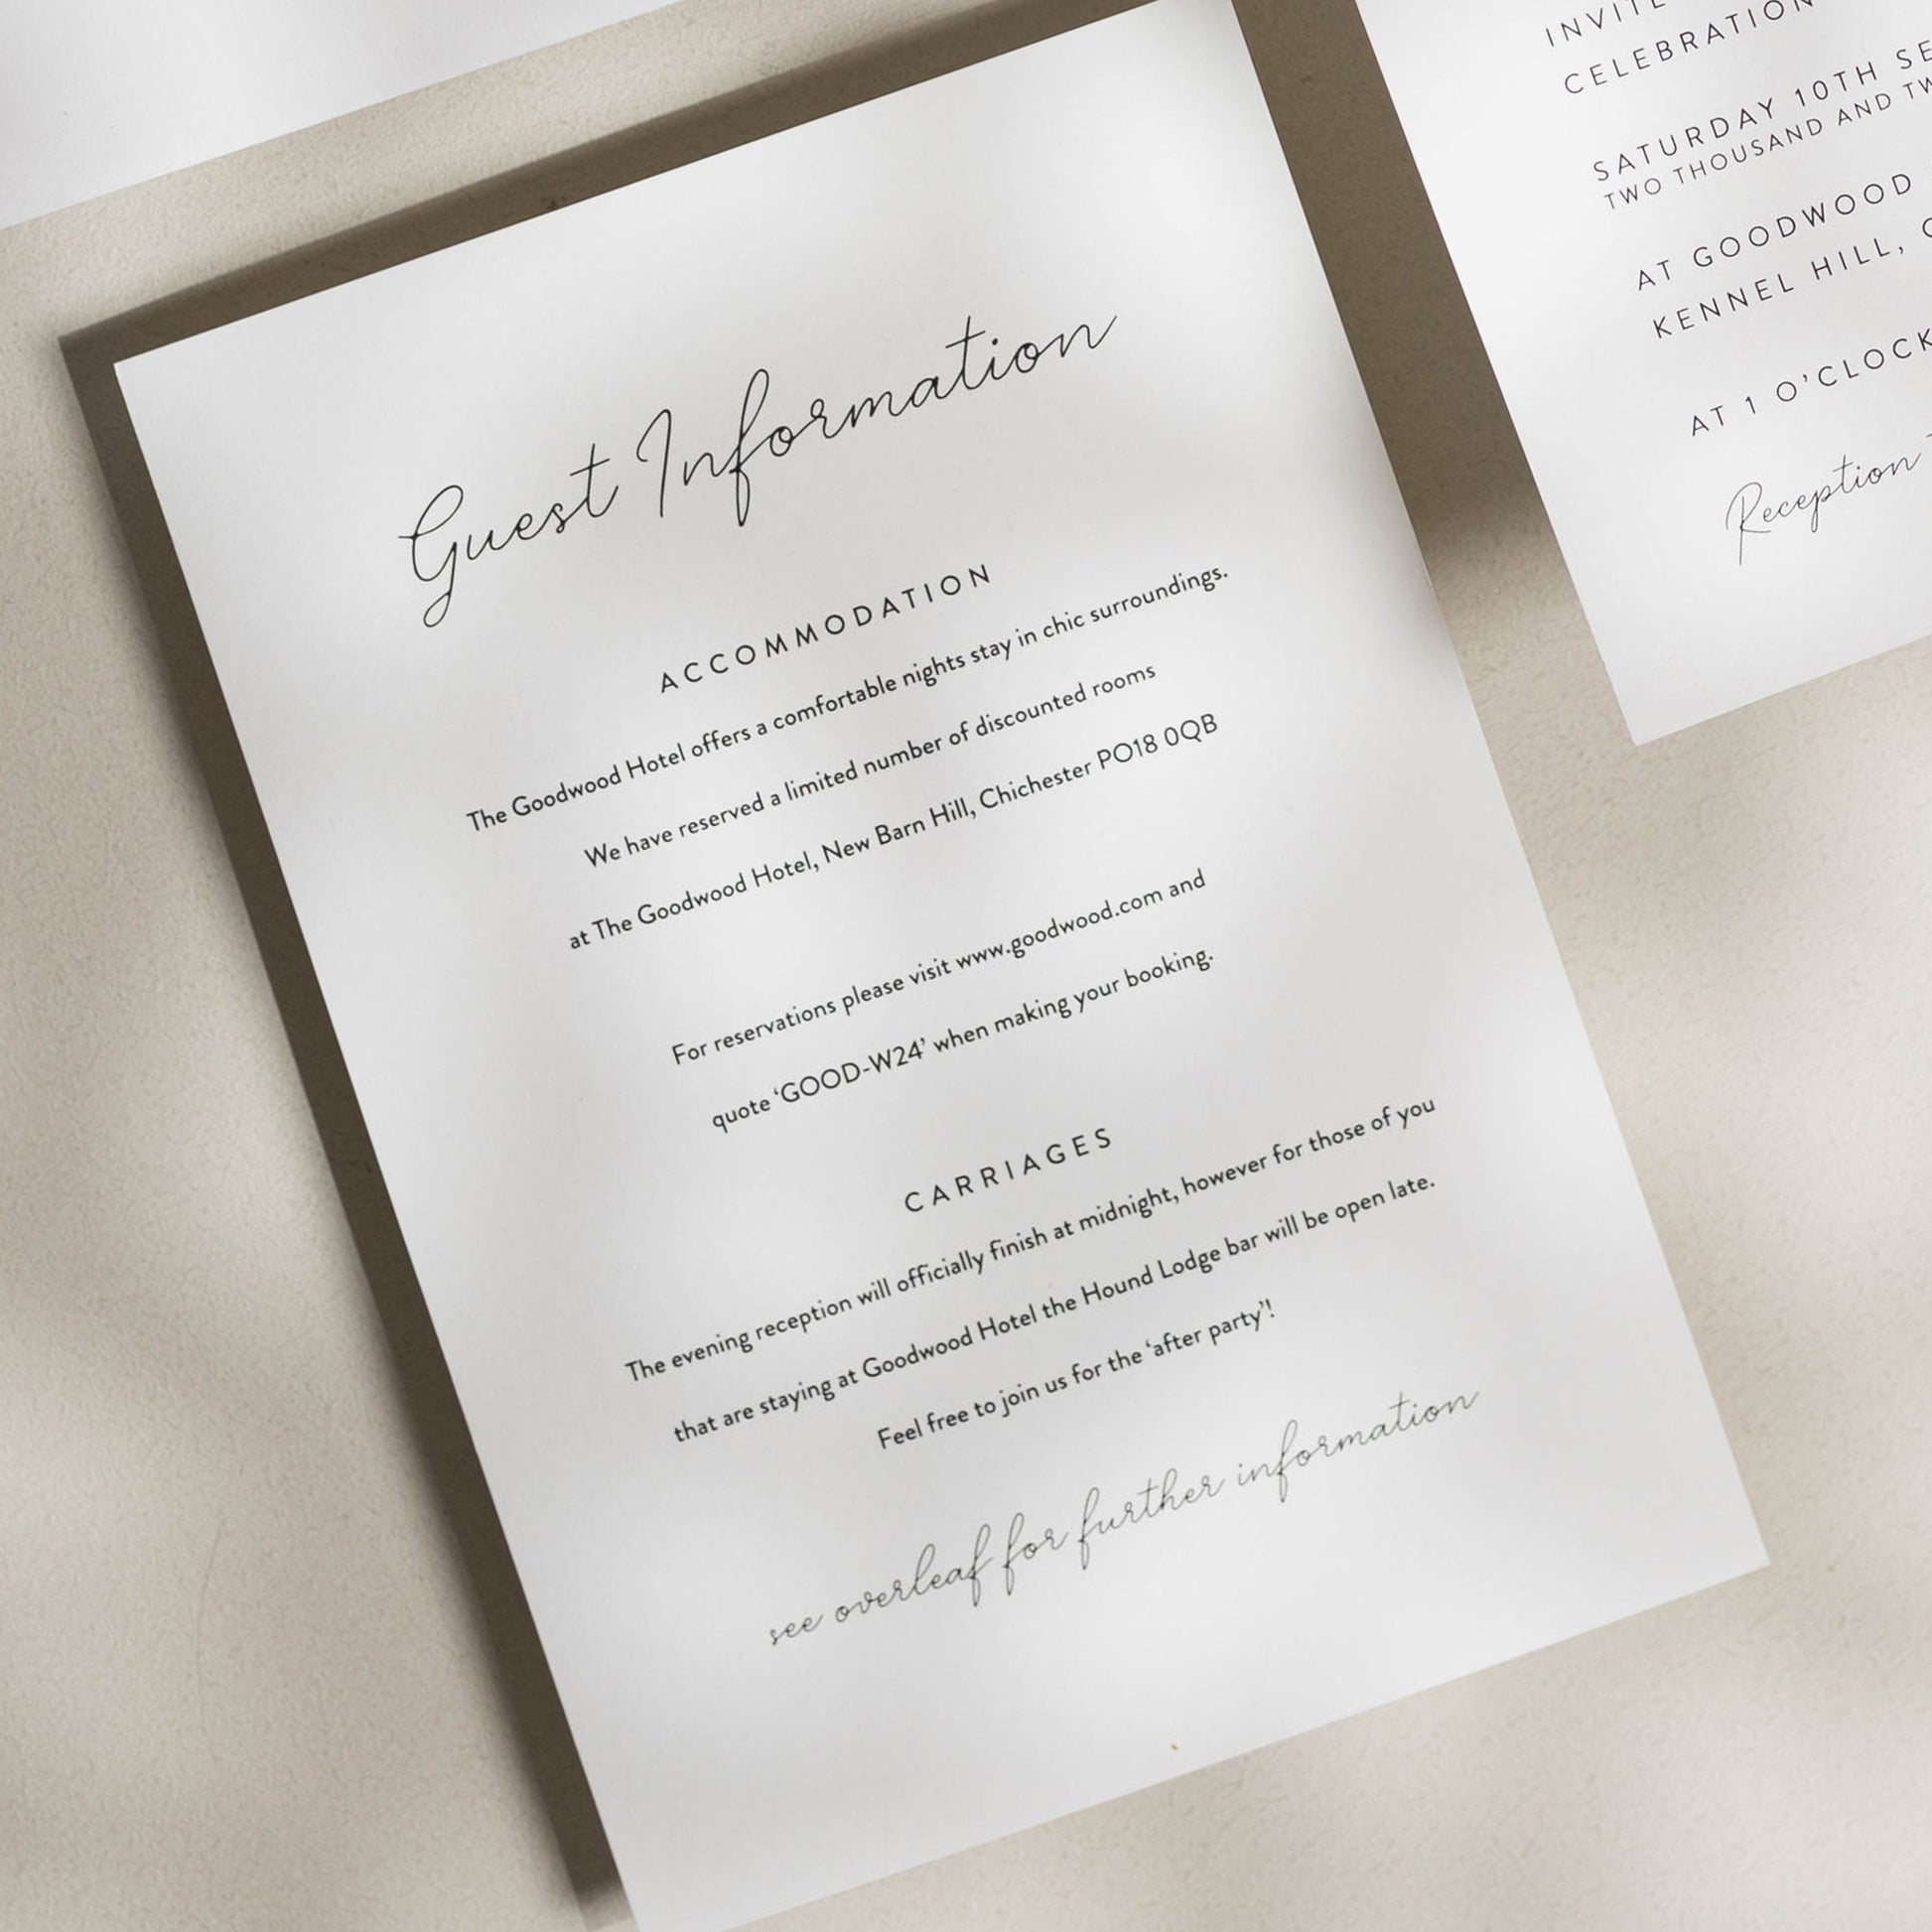 Guest Information
ACCOMMODATION
The Goodwood Hotel offers a comfortable nights stay in chic surroundings.
We have reserved a limited number of discounted rooms
at The Goodwood Hotel, New Barn Hill, Chichester PO18 0QB
For reservations please visit www.goodwood.com and
quote ‘GOOD-W24’ when making your booking.
CARRIAGES
The evening reception will officially finish at midnight, however for those of you
that are staying at Goodwood Hotel the Hound Lodge bar will be open late.
Feel free to join us for the ‘after party’!
see overleaf for further information
CELEBRATION
SATURDAY 10TH
TWO THOUSAND AND
AT GOODWOOD
KENNEL HILL,
AT 1 O’CLOCK
Reception